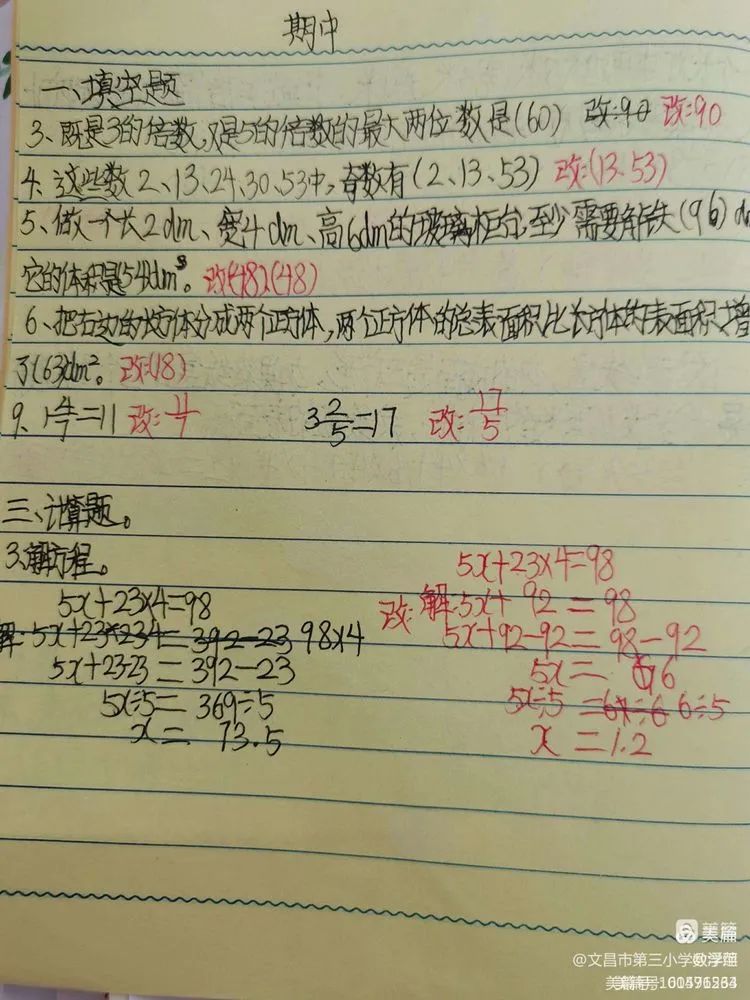 期中
一、填空题
3、既是3的倍数,又是5的倍数的最大两位数是(60) 改:90 改:90
4、这些数2、13、24、30、53中,奇数有(2、13、53) 改:(13、53)
5、做一个长2dm、宽4dm、高6dm的玻璃柜台,至少需要角铁(96)d
它的体积是54dm³。 改(48)(48)
6、把右边的长方体分成两个正方体,两个正方体的总表面积比长方体的表面积增
了(63)dm²。 改:(18)
9、1 4/7=11 改: 11/7 3 2/5=17 改: 17/5
三、计算题。
3、解方程。
5x+23×4=98
解: 5x+23×234=392-23 98×4
5x+2323=392-23
5x÷5=369÷5
x=73.5
5x+23×4=98
改: 解:5x+92=98
5x+92-92=98-92
5x=6
5x÷5=6x÷6 6÷5
x=1.2
美篇
@文昌市第三小学